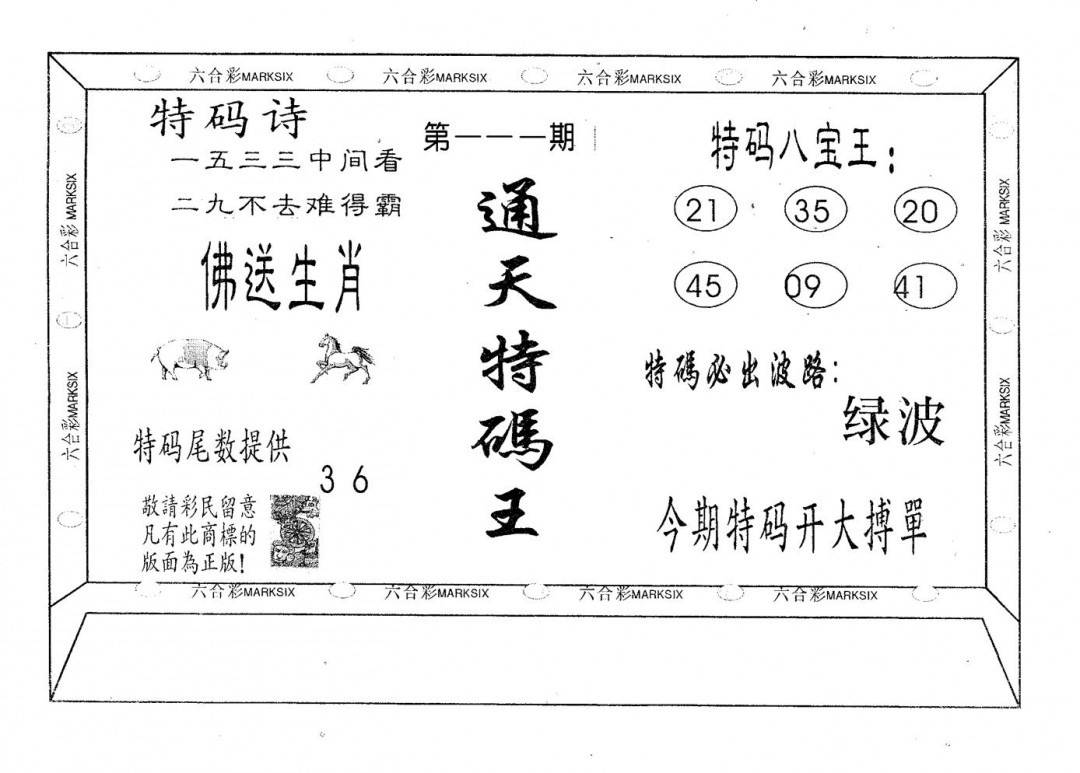 六合彩MARKSIX 六合彩MARKSIX 六合彩MARKSIX 六合彩MARKSIX
六合彩 MARKSIX
六合彩MARKSIX
特码诗
一五三三中间看
二九不去难得霸
佛送生肖
特码尾数提供
3 6
敬請彩民留意
凡有此商標的
版面為正版!
第一一一期
通天特碼王
特码八宝王:
21 35 20
45 09 41
特碼必出波路:
绿波
今期特码开大搏單
六合彩 MARKSIX
六合彩MARKSIX
六合彩MARKSIX 六合彩MARKSIX 六合彩MARKSIX 六合彩MARKSIX